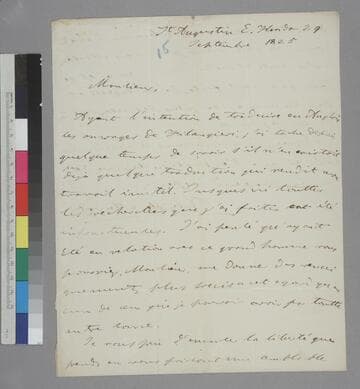 St Augustin E. Florida 29
15 Septembre 1825
Monsieur,
Ayant l'intention de traduire en Anglais
les ouvrages de Filangieri, j'ai taché depuis
quelque temps de savoir s'il n'en existait
déjà quelque traduction qui rendit mon
travail inutil. Jusques ici toutes
les recherches que j'ai faites ont été
infructueuses. J'ai pensé que ayant
été en relation avec ce grand homme vous
pourriez, Monsieur, me donner des renseig-
nements plus precis et
ceux que je pouvois avoir par toute
autre source.
Je vous prie d'excuser la liberté que
je prends en vous faisant une semblable